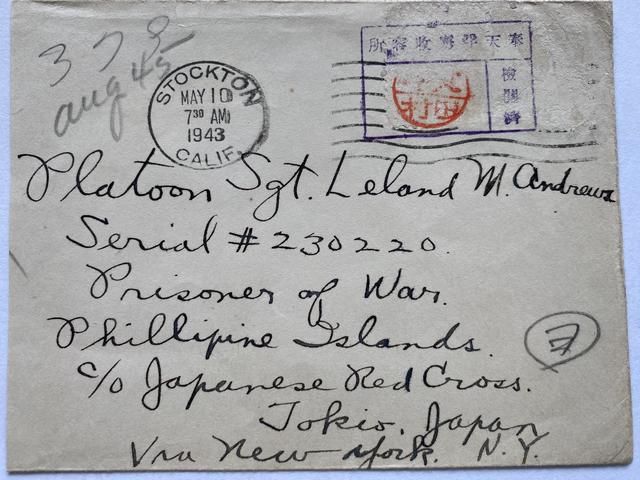 378
aug 45
STOCKTON
MAY 10
7 30 AM
1943
CALIF.
奉天俘虜收容所
檢閱濟
Platoon Sgt. Leland M. Andrews
Serial # 230220.
Prisoner of War.
Phillipine Islands.
c/o Japanese Red Cross.
Tokio, Japan
Via New York. N.Y.